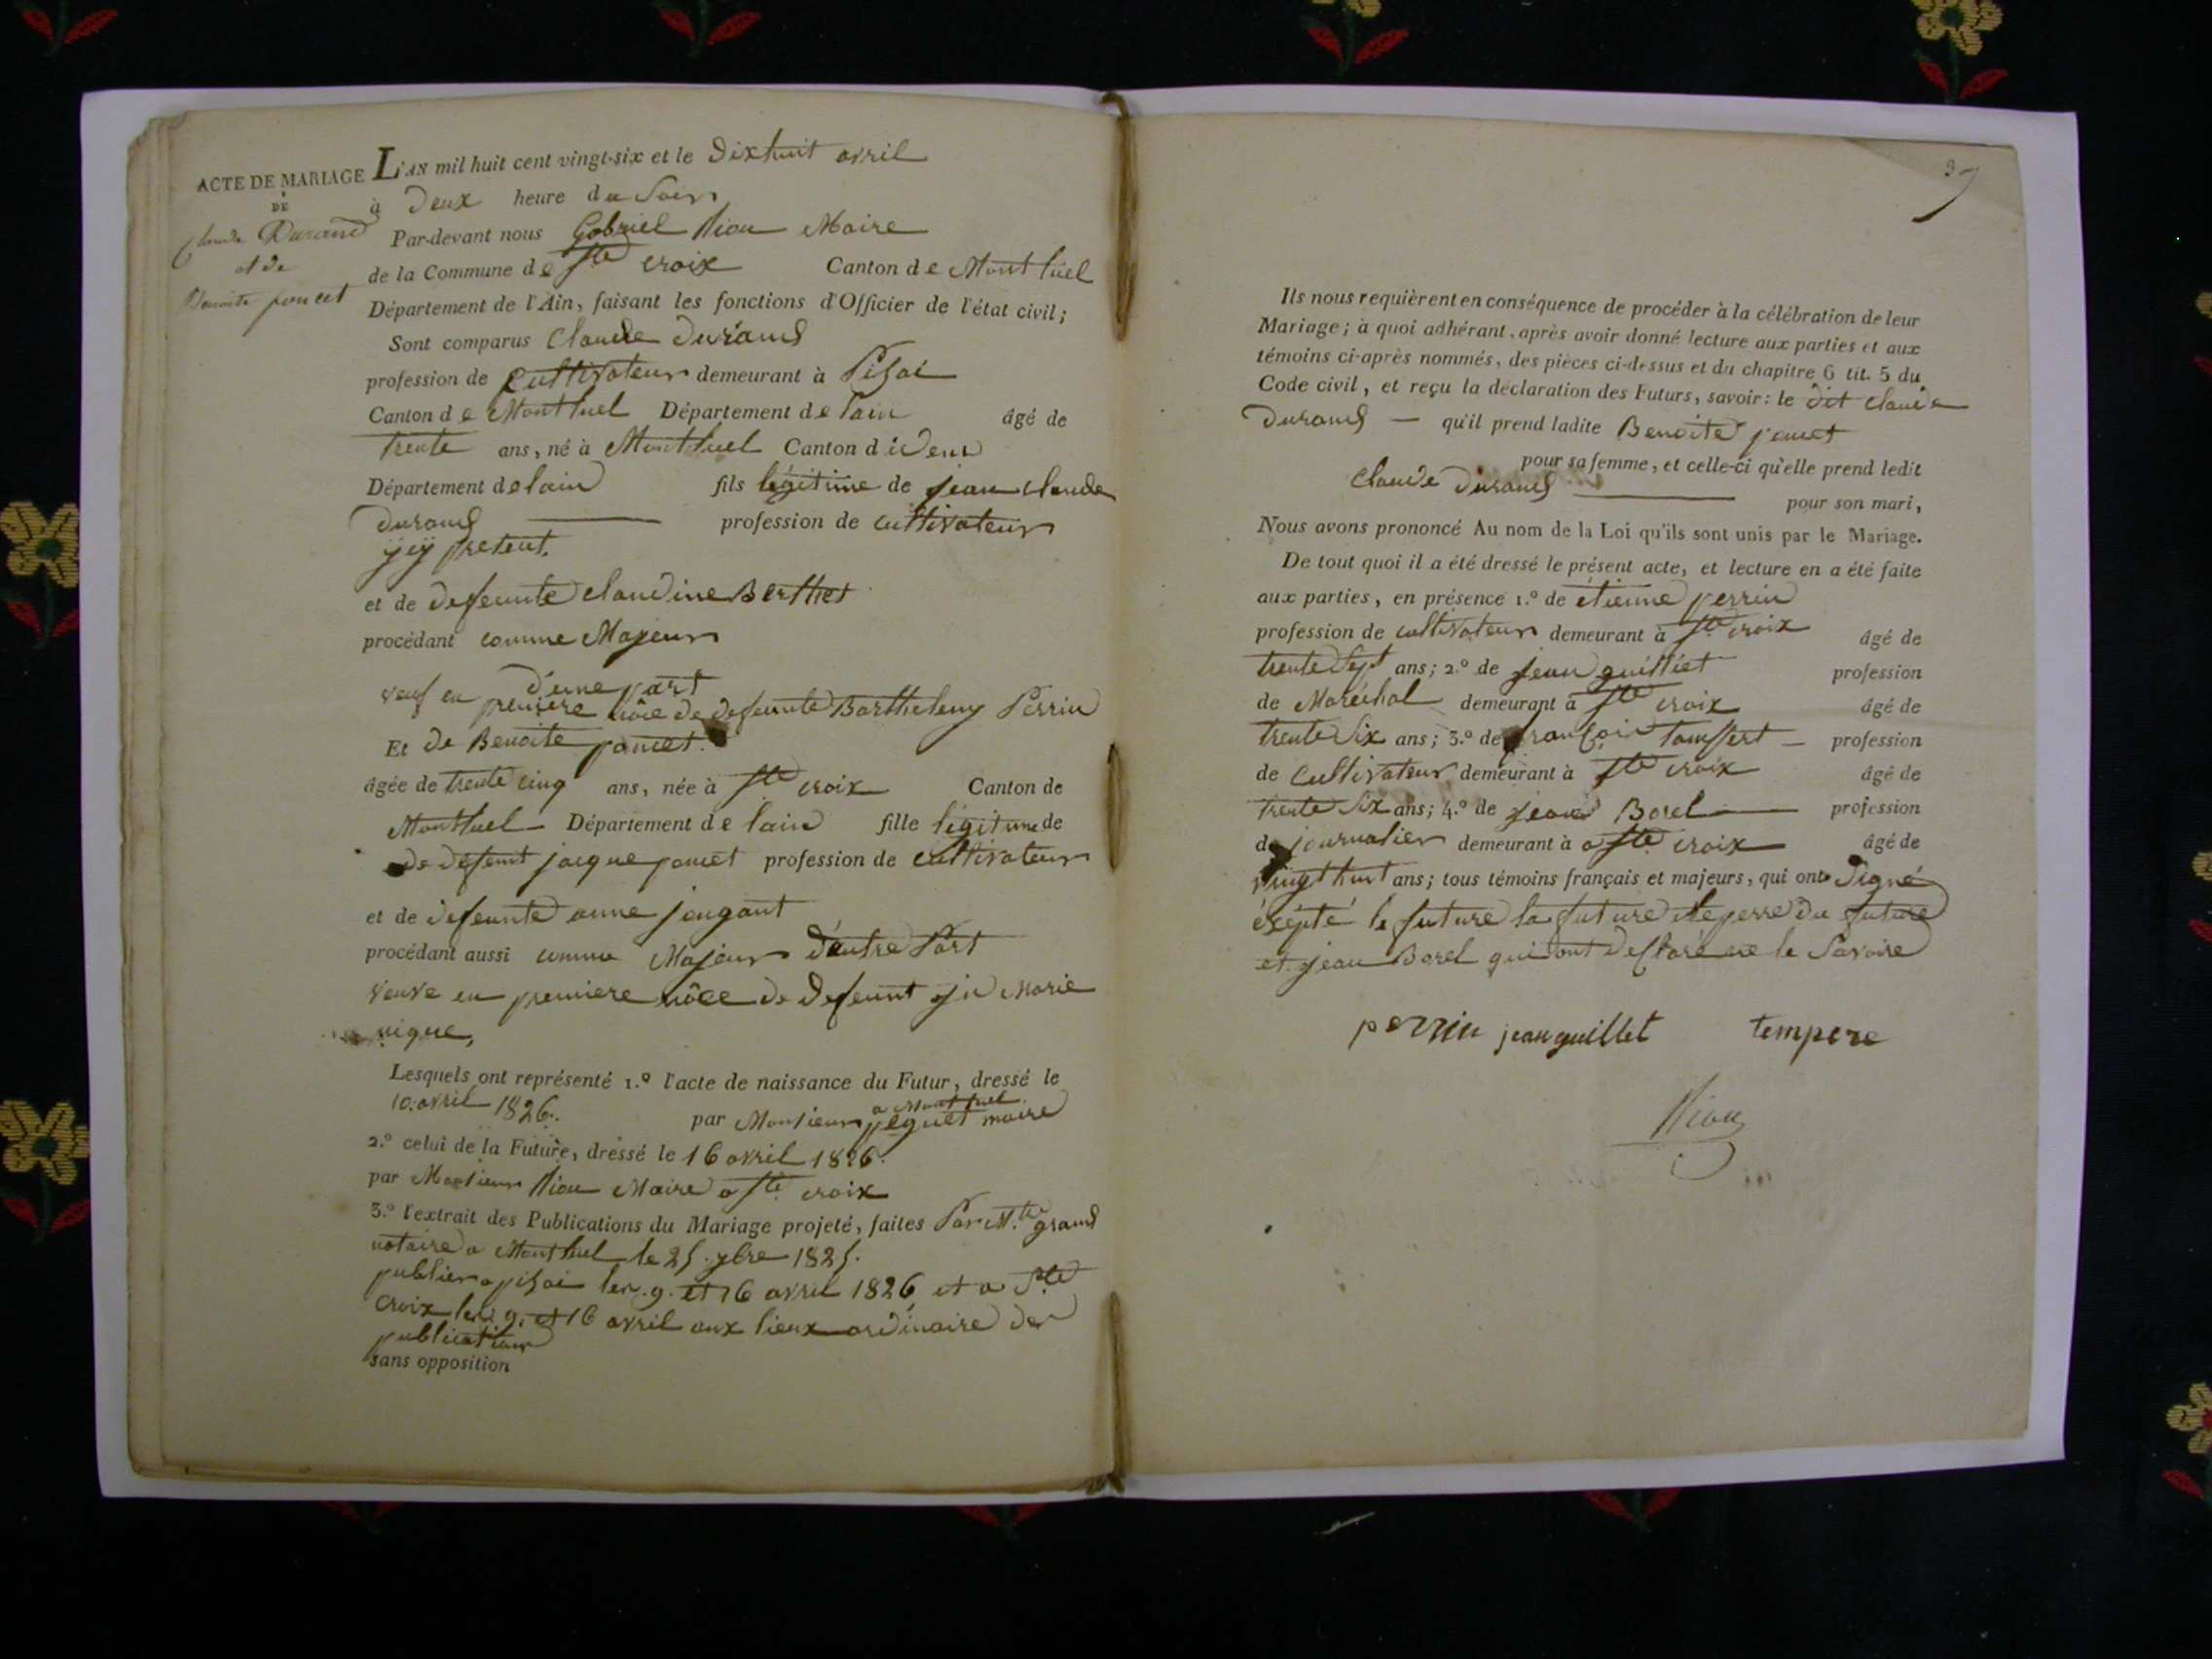 ACTE DE MARIAGE
DE
Claude Durand
et de
Benoite poncet
L'AN mil huit cent vingt-six et le Dixhuit avril
à Deux heure du Soir
Par-devant nous Gabriel Maire
de la Commune de Ste croix Canton de Montluel
Département de l'Ain, faisant les fonctions d'Officier de l'état civil;
Sont comparus Claude Durand
profession de Cultivateur demeurant à Pisai
Canton de Montluel Département de lain âgé de
trente ans, né à Montluel Canton d idem
Département de lain fils légitime de jean claude
Durand profession de cultivateur
ÿcÿ present.
et de defeunte claudine Berthet
procédant comme Majeur
d'une part
veuf en premiere nôce de defeunte Barthelemy Perrin
Et de Benoite poncet.
âgée de trente cinq ans, née à Ste croix Canton de
Montluel Département de lain fille légitime de
de defeunt jacque poncet profession de cultivateur
et de defeunte anne
procédant aussi comme Majeur d'autre Part
veuve en premiere nôce de defeunt jn Marie
nique,
Lesquels ont représenté 1.º l'acte de naissance du Futur, dressé le
10. avril 1826. par Monsieur peguet maire
a Montluel
2.º celui de la Future, dressé le 16 avril 1826.
par Monsieur Maire a Ste croix
3.º l'extrait des Publications du Mariage projeté, faites Par M.tre grand
notaire a Montluel le 25. 9bre 1825.
publier a pisai les. 9. et 16 avril 1826 et a Ste
croix les 9. et 16 avril aux lieux ordinaire des
publication
sans opposition
37
Ils nous requièrent en conséquence de procéder à la célébration de leur
Mariage; à quoi adhérant, après avoir donné lecture aux parties et aux
témoins ci-après nommés, des pièces ci-dessus et du chapitre 6 tit. 5 du
Code civil, et reçu la déclaration des Futurs, savoir: le dit claude
Durand — qu'il prend ladite Benoite poncet
pour sa femme, et celle-ci qu'elle prend ledit
Claude Durand pour son mari,
Nous avons prononcé Au nom de la Loi qu'ils sont unis par le Mariage.
De tout quoi il a été dressé le présent acte, et lecture en a été faite
aux parties, en présence 1.º de étienne perrin
profession de cultivateur demeurant à Ste croix âgé de
trente Sept ans; 2.º de jean guilliet profession
de Maréchal demeurant à Ste croix âgé de
trente Six ans; 3.º de françois — profession
de Cultivateur demeurant à Ste croix âgé de
trente Six ans; 4.º de jean Borel profession
de journalier demeurant à a Ste croix âgé de
vingt huit ans; tous témoins français et majeurs, qui ont Signé
éxépté le future la future le perre du future
et jean Borel qui ont declaré ne le Savoire
perrin jean guillet tempere